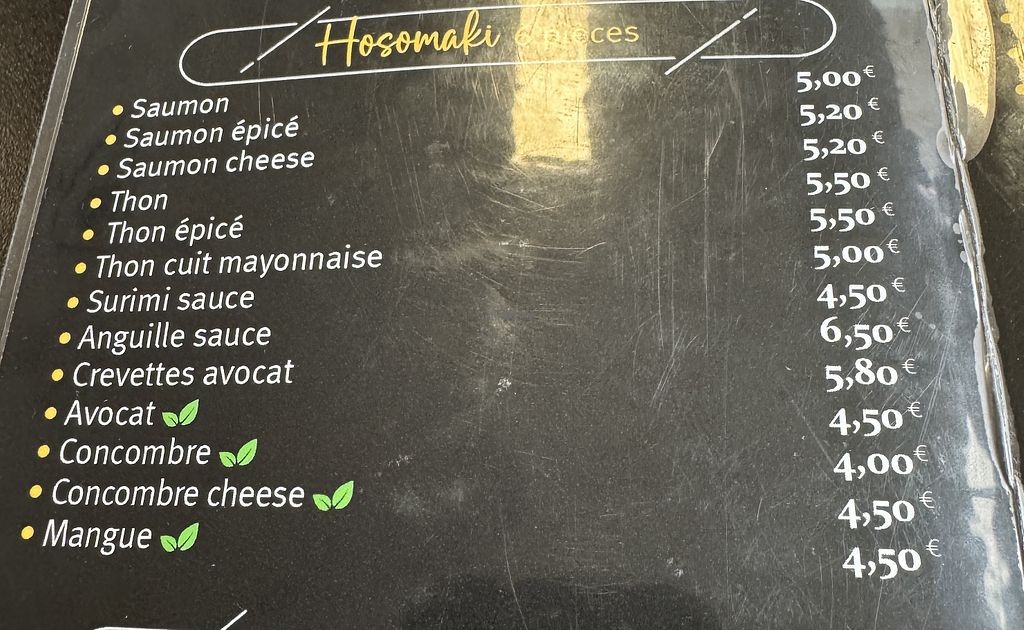 Hosomaki 6 pièces
Saumon 5,00€
Saumon épicé 5,20€
Saumon cheese 5,20€
Thon 5,50€
Thon épicé 5,50€
Thon cuit mayonnaise 5,00€
Surimi sauce 4,50€
Anguille sauce 6,50€
Crevettes avocat 5,80€
Avocat 4,50€
Concombre 4,00€
Concombre cheese 4,50€
Mangue 4,50€